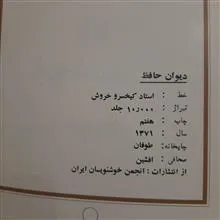 دیوان حافظ
خط : استاد کیخسرو خروش
تیراژ : ۱۰٫۰۰۰ جلد
چاپ : هفتم
سال : ۱۳۷۱
چاپخانه: طوفان
صحافی : افشین
از انتشارات : انجمن خوشنویسان ایران